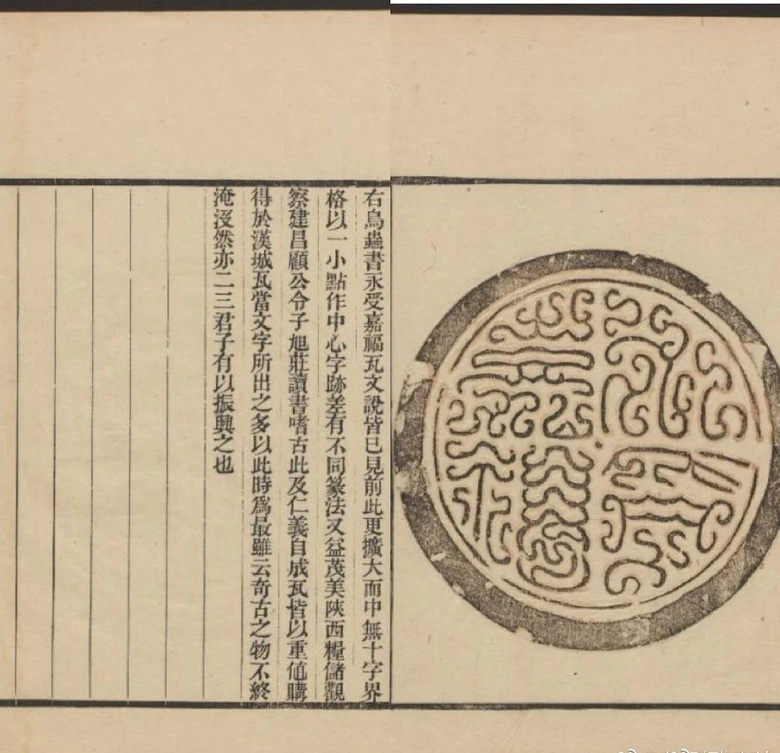 永受嘉福
右鳥蟲書永受嘉福瓦文說皆已見前此更擴大而中無十字界
格以一小點作中心字跡差有不同篆法又益茂美陝西糧儲觀
察建昌顧公令子旭莊讀書嗜古此及仁義自成瓦皆以重値購
得於漢城瓦當文字所出之多以此時爲最雖云奇古之物不終
淹沒然亦二三君子有以振興之也